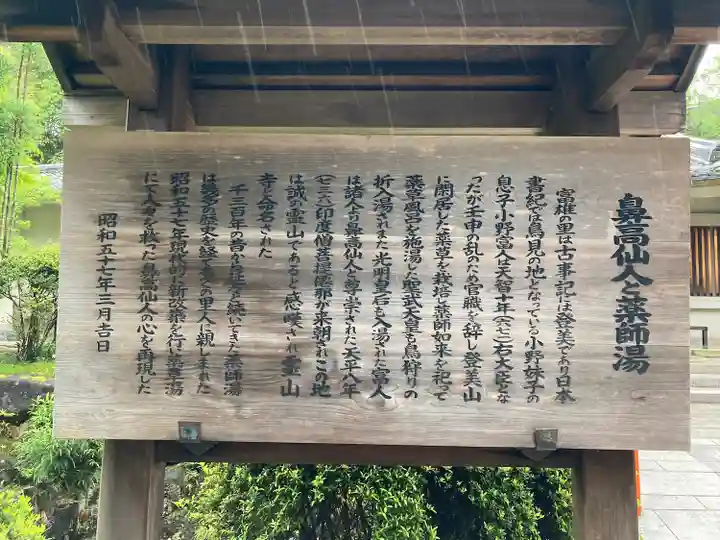 鼻高仙人と薬師湯
富雄の里は古事記には登美であり日本
書紀には鳥見の地となっている小野妹子の
息子小野富人は天智十年(六七一)右大臣とな
ったが壬申の乱のため官職を辞し登美山
に閑居した薬草を栽培し薬師如来を祀って
薬草風呂を施湯した聖武天皇も鳥狩りの
折入湯された光明皇后も入湯された富人
は諸人より鼻高仙人と尊崇された天平八年
(七三六)印度僧菩提僊那が来朝されこの地
は誠の霊山であると感嘆され霊山
寺と命名された
千三百年の昔から徒歩と続いてきた薬師湯
は幾多の歴史を経て多くの里人に親しまれた
昭和五十七年現代的な新改築を行い薬草湯
に下人々を救った鼻高仙人の心を再現した
昭和五十七年三月吉日